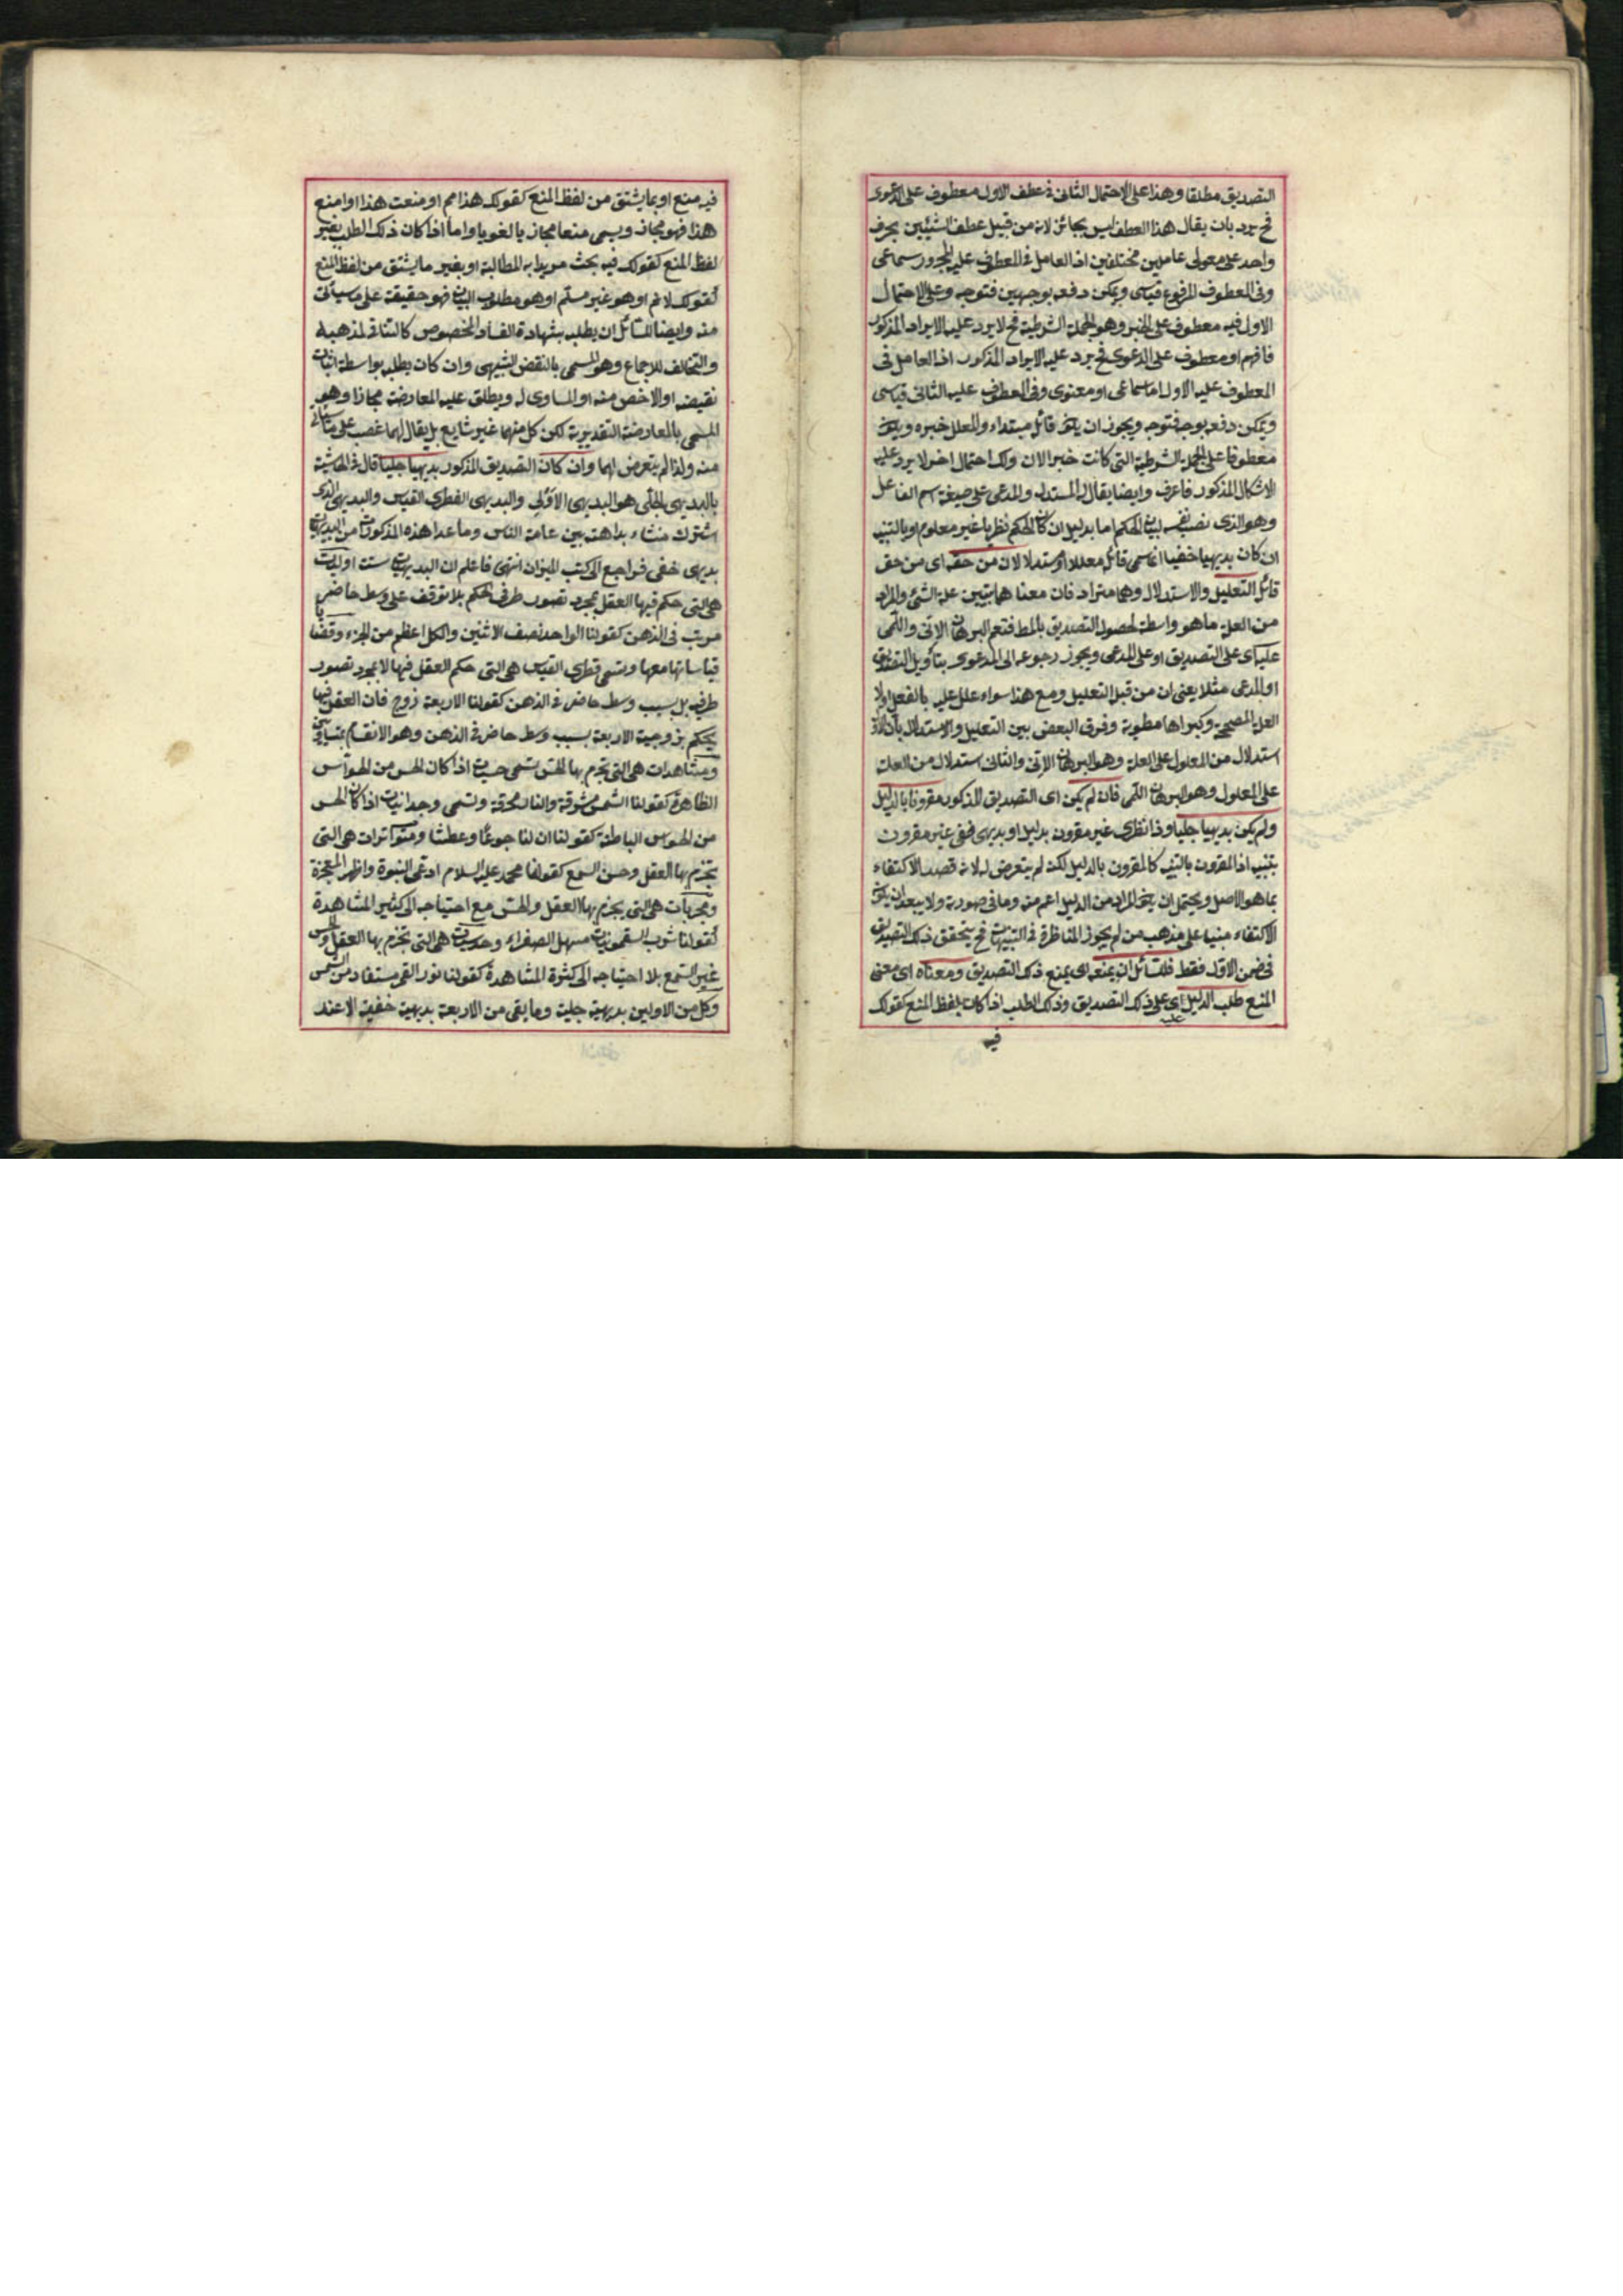 التصديق مطلقا وهذا على الاحتمال الثانى فى عطف الاول معطوف على الدعوى
فح يرد بان يقال هذا العطف ليس بجائز لانه من قبيل عطف الشيئين بحرف
واحد على معمولى عاملين مختلفين اذ العامل فى المعطوف عليه المجرور سماعى
وفى المعطوف المرفوع قياسى ويمكن دفعه بوجهين فتوجه وعلى الاحتمال
الاول فيه معطوف على الخبر وهو الجملة الشرطية فح لا يرد عليه الايراد المذكور
فافهم او معطوف على الدعوى فح يرد عليه الايراد المذكور اذ العامل فى
المعطوف عليه الاول اما سماعى او معنوى وفى المعطوف عليه الثانى قياسى
ويمكن دفعه بوجه فتوجه ويجوز ان يكون قائل مبتداء والمعلل خبره ويكون
معطوفا على الجملة الشرطية التى كانت خبر الان ولك احتمال اخر لا يرد عليه
الاشكال المذكور فاعرف وايضا يقال له المستدل والمدعى على صيغة اسم الفاعل
وهو الذى نصب نفسه لبيان الحكم اما بدليل ان كان الحكم نظريا غير معلوم او بالتنبيه
ان كان بديهيا خفيا انما سمى قائله معللا او مستدلا لان من حقه اى من حق
قائل التعليل والاستدلال وهما مترادفان معناهما تبيين علة الشئ والمراد
من العلة ما هو واسطة لحصول التصديق بالمط فتعم البرهان الانى واللمى
عليه اى على التصديق او على المدعى ويجوز رجوعه الى الدعوى بتأويل التصديق
او المدعى مثلا يعنى ان من قبل التعليل ومع هذا سواء علل عليه بالفعل او لا
العلة المصححة وكبراها مطوية وفرق البعض بين التعليل والاستدلال بان الاول
استدلال من المعلول على العلة وهو البرهان الانى والثانى استدلال من العلة
على المعلول وهو البرهان اللمى فان لم يكن اى التصديق المذكور مقرونا بالدليل
ولم يكن بديهيا جليا وذا نظرى غير مقرون بدليل او بديهى خفى غير مقرون
بتنبيه اذ المقرون بالتنبيه كالمقرون بالدليل لكنه لم يتعرض له لانه قصد الاكتفاء
بما هو الاصل ويحتمل ان يكون المراد من الدليل اعم منه وما فى صورته ولا يبعد ان يكون
الاكتفاء مبنيا على مذهب من لم يجوز المناظرة فى التنبيهات فح يتحقق ذلك التصديق
فى ضمن الاول فقط فللسائل ان يمنعه اى يمنع ذلك التصديق ومعناه اى معنى
المنع طلب الدليل اى على ذلك التصديق وذلك الطلب اذا كان بلفظ المنع كقولك
عليه
فيه
فيه منع او بما يشتق من لفظ المنع كقولك هذا مم او منعت هذا او امنع
هذا فهو مجاز ويسمى منعا مجازيا لغويا واما اذا كان ذلك الطلب بغير
لفظ المنع كقولك فيه بحث مريدا به المطالبة او بغير ما يشتق من لفظ المنع
كقولك لا نم او هو غير مسلم او هو مطلوب البيان فهو حقيقة على ما سيأتى
منه وايضا للسائل ان يطلبه بشهادة الفساد المخصوص كالتنافى لمذهبه
والتخالف للاجماع وهو المسمى بالنقض الشبيهى وان كان يطلبه بواسطة اثبات
نقيضه او الاخص منه او المساوى له ويطلق عليه المعارضة مجازا وهو
المسمى بالمعارضة التقديرية لكن كل منهما غير شايع بل يقال لهما غصب على ما سيأتى
منه ولذا لم يتعرض لهما وان كان التصديق المذكور بديهيا جليا قال فى الحاشية
بالبديهى الجلى هو البديهى الاولى والبديهى الفطرى القياس والبديهى الذى
اشترك منشاء بداهته بين عامة الناس وما عدا هذه المذكورات من البديهيات
بديهى خفى فراجع الى كتب الميزان انتهى فاعلم ان البديهيات ستة اوليات
هى التى حكم فيها العقل بمجرد تصور طرفى الحكم بلا توقف على وسط حاضر
مرتب فى الذهن كقولنا الواحد نصف الاثنين والكل اعظم من الجزء وقضايا
قياساتها معها وتسمى فطرى القياس هى التى حكم العقل فيها لا بمجرد تصور
طرفيه بل بسبب وسط حاضر فى الذهن كقولنا الاربعة زوج فان العقل فيها
يحكم بزوجية الاربعة بسبب وسط حاضر فى الذهن وهو الانقسام بمتساويين
ومشاهدات هى التى تجزم بها الحس تسمى حسيات اذا كان الحس من الحواس
الظاهرة كقولنا الشمس مشرقة والنار محرقة وتسمى وجدانيات اذا كان الحس
من الحواس الباطنة كقولنا ان لنا جوعا وعطشا ومتواترات هى التى
تجزم بها العقل وحس السمع كقولنا محمد عليه السلام ادعى النبوة واظهر المعجزة
ومجربات هى التى يجزم بها العقل والحس مع احتياجه الى كثير المشاهدة
كقولنا شرب السقمونيات مسهل الصفراء وحدسيات هى التى تجزم بها العقل والحس
غير السمع بلا احتياجه الى كثرة المشاهدة كقولنا نور القمر مستفاد من الشمس
وكل من الاولين بديهية جلية وما بقى من الاربعة بديهية خفية الا عند